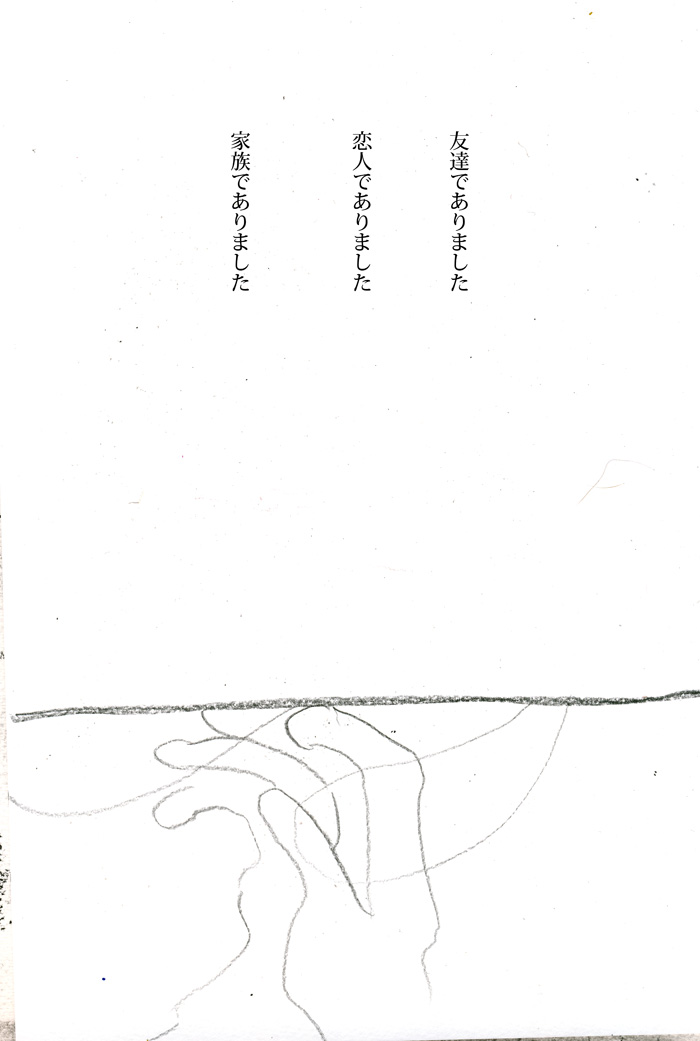 友達でありました
恋人でありました
家族でありました